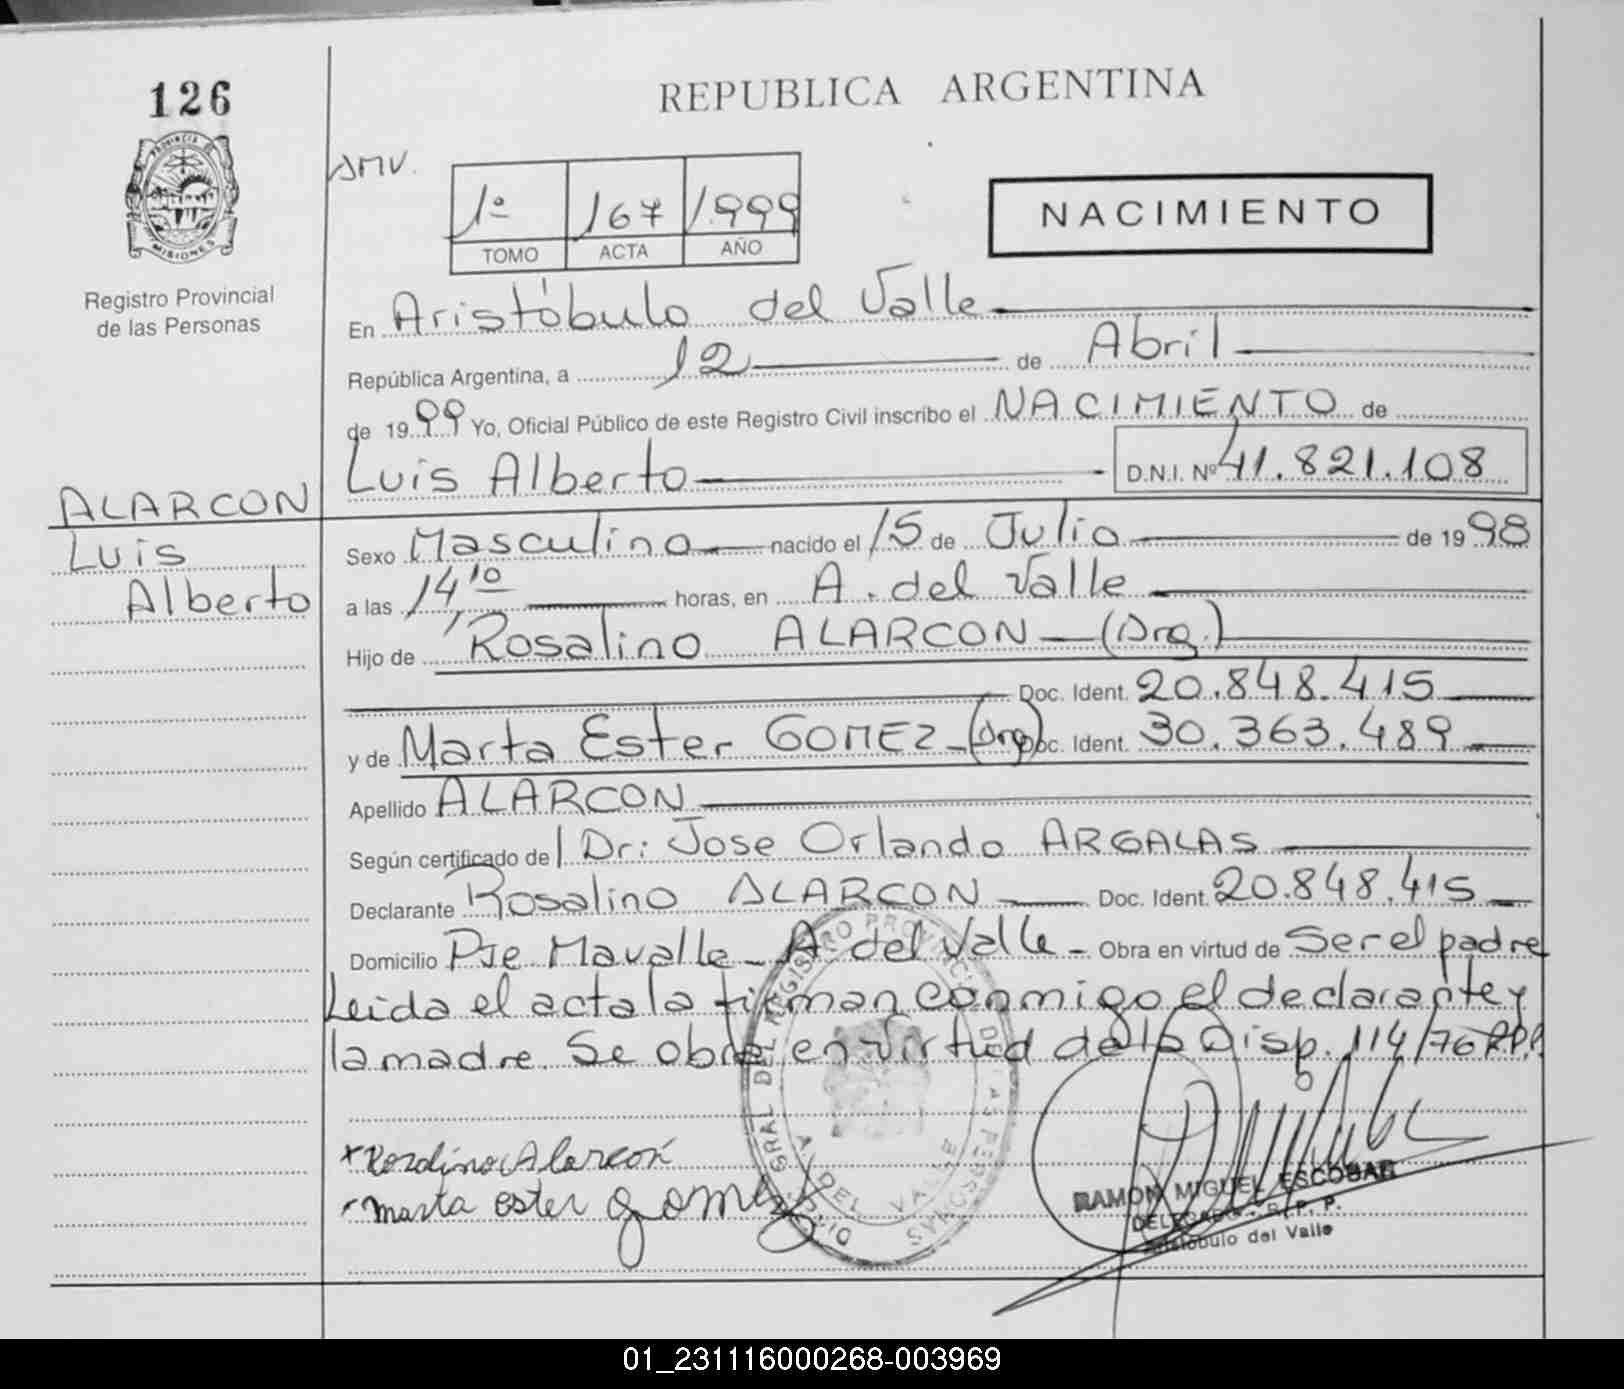 126
PROVINCIA DE
MISIONES
Registro Provincial
de las Personas
ALARCON
Luis
Alberto
REPUBLICA ARGENTINA
AMV.
1º 167 1.999
TOMO ACTA AÑO
NACIMIENTO
En Aristóbulo del Valle
República Argentina, a 12 de Abril
de 1999 Yo, Oficial Público de este Registro Civil inscribo el NACIMIENTO de
Luis Alberto D.N.I. Nº 41.821.108
Sexo Masculino nacido el 15 de Julio de 1998
a las 14,10 horas, en A. del Valle
Hijo de Rosalino ALARCON (Arg.)
Doc. Ident. 20.848.415
y de Marta Ester GOMEZ (Arg) Doc. Ident. 30.363.489
Apellido ALARCON
Según certificado de Dr: Jose Orlando ARGALAS
Declarante Rosalino ALARCON Doc. Ident. 20.848.415
Domicilio Pje Mavalle - A del Valle - Obra en virtud de Ser el padre
Leida el acta la firman conmigo el declarante y
la madre. Se obra en virtud de la Disp. 114/76 R.P.P.
Rosalino Alarcon
Marta Ester gomez
REGISTRO PROVINCIAL DE LAS PERSONAS
A. DEL VALLE
RAMON MIGUEL ESCOBAR
DELEGADO - R. P. P.
Aristóbulo del Valle
01_231116000268-003969